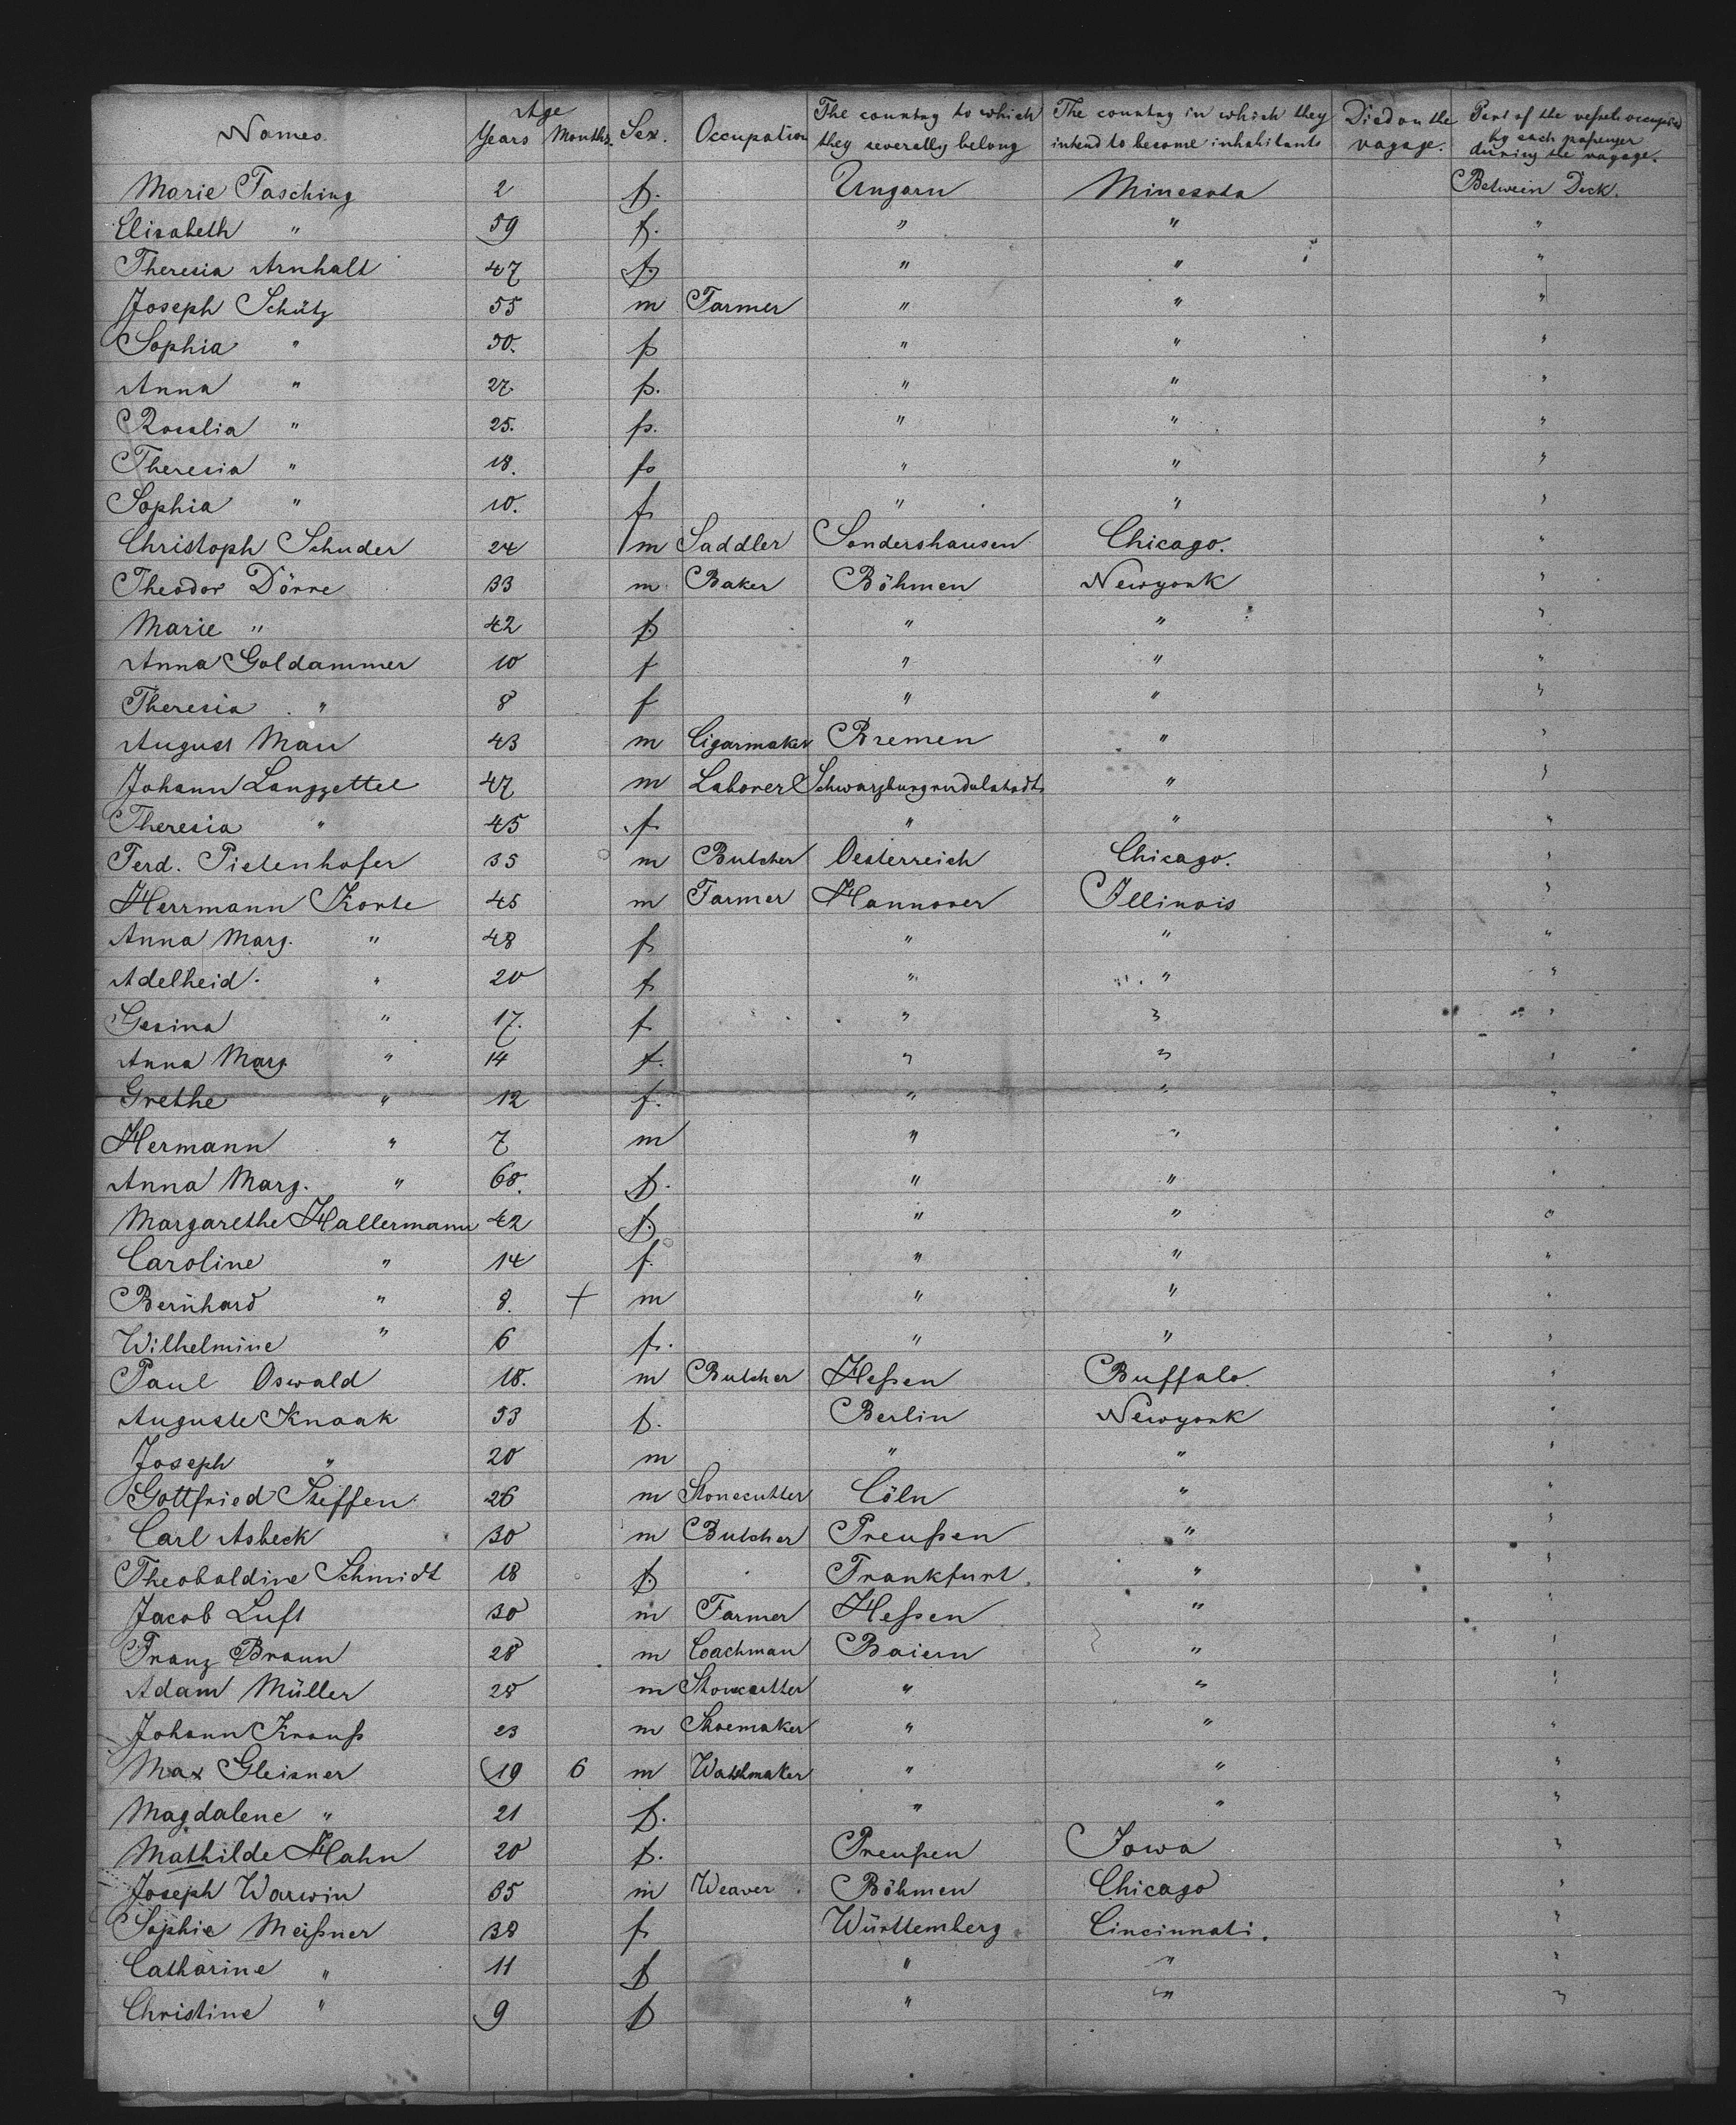 Names Age Years Months. Sex. Occupation The country to which they severally belong The country in which they intend to become inhabitants Died on the vagage. Part of the vessels occupied by each passenger during the vagage.
Marie Tasching 2 f. Ungarn Minesota Betwein Deck.
Elisabeth " 59 f. " " "
Theresia Arnhalt 47 f. " " "
Joseph Schütz 55 m Farmer " " "
Sophia " 50. f " " "
Anna " 27. f. " " "
Rosalia " 25. f. " " "
Theresia " 18. f " " "
Sophia " 10. f " " "
Christoph Schuder 24 m Saddler Sondershausen Chicago. "
Theodor Dörre 33 m Baker Böhmen Newyork "
Marie " 42 f. " " "
Anna Goldammer 10 f " " "
Theresia " 8 f " " "
August Mau 43 m Cigarmaker Bremen " "
Johann Langzettel 47 m Laborer Schwarzburgrudolstadt " "
Theresia " 45 f " " "
Ferd. Pietenhofer 35 m Butcher Oesterreich Chicago. "
Herrmann Korte 45 m Farmer Hannover Illinois "
Anna Marg. " 48 f " " "
Adelheid. " 20 f " " "
Gesina " 17. f " " "
Anna Marg. " 14 f. " " "
Grethe " 12 f. " " "
Hermann " 7 m " " "
Anna Marg. " 68. f. " " "
Margarethe Hallermann 42 f. " " "
Caroline " 14 f. " " "
Bernhard " 8. + m " " "
Wilhelmine " 6 f. " " "
Paul Oswald 18. m Butcher Heßen Buffalo. "
Auguste Knaak 53 f. Berlin Newyork "
Joseph " 20 m " " "
Gottfried Steffen 26 m Stonecutter Cöln " "
Carl Asbeck 30 m Butcher Preußen " "
Theobaldine Schmidt 18 f. Frankfurt. " "
Jacob Luft 30 m Farmer Heßen " "
Franz Braun 28 m Coachman Baiern " "
Adam Müller 28 m Stonecutter " " "
Johann Krauß 23 m Shoemaker " " "
Max Gleisner 19 6 m Watchmaker " " "
Magdalene " 21 f. " " "
Mathilde Hahn 20 f. Preußen Iowa "
Joseph Warwin 35 m Weaver Böhmen Chicago "
Sophie Meißner 38 f Württemberg Cincinnati. "
Catharine " 11 f " " "
Christine " 9 f " " "